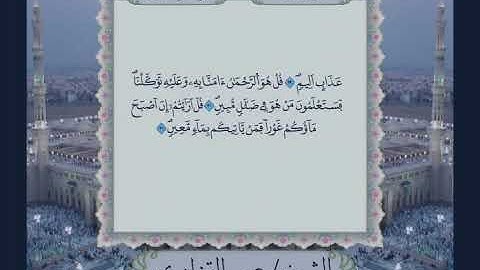 عَذَابٍ اَلِيمٖۖ قُلْ هُوَ اَلرَّحْمَٰنُ ءَامَنَّا بِهِۦ وَعَلَيْهِ تَوَكَّلْنَاۖ
فَسَتَعْلَمُونَ مَنْ هُوَ فِے ضَلَٰلٖ مُّبِينٖۖ قُلَ اَرَٰٓيْتُمُۥٓ إِنَ اَصْبَحَ
مَآؤُكُمْ غَوْراٗ فَمَنْ يَّاتِيكُم بِمَآءٖ مَّعِينٖۖ
الشيخ /